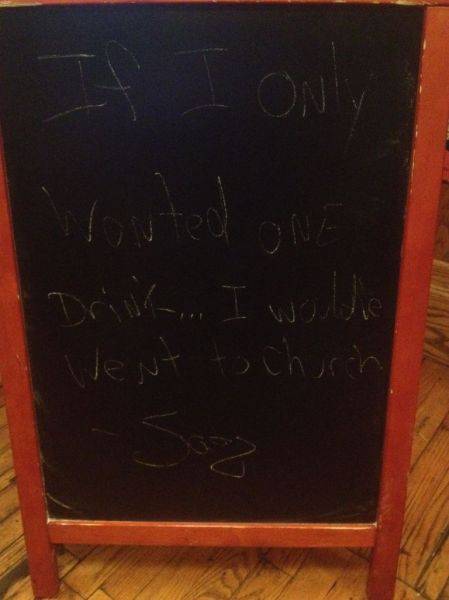 If I only
Wanted one
Drink... I would've
Went to Church